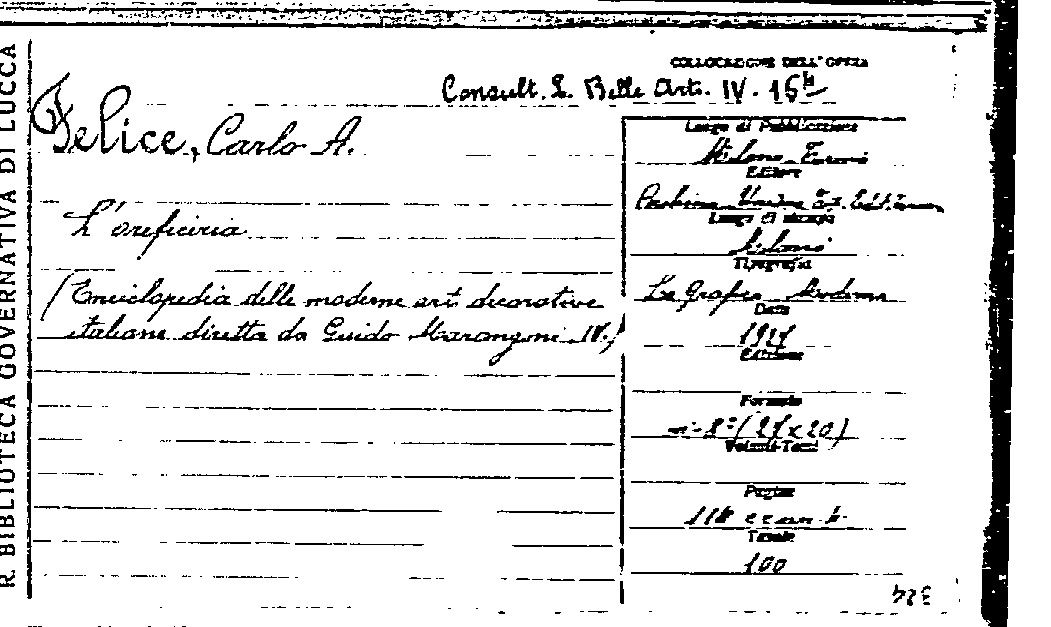 R. BIBLIOTECA GOVERNATIVA DI LUCCA
COLLOCAZIONE DELL'OPERA
Consult. S. Belle Arti. IV. 15
Felice, Carlo A.
L'oreficiria
(Enciclopedia delle moderne arti decorative
italiane diretta da Guido Marangoni IV.)
Luogo di Pubblicazione
Milano
Editore
Luogo di stampa
Milano
Tipografia
La Grafica Moderna
Data
Edizione
Formato
in-8°
Volumi-Tomi
Pagine
Tavole
100
324